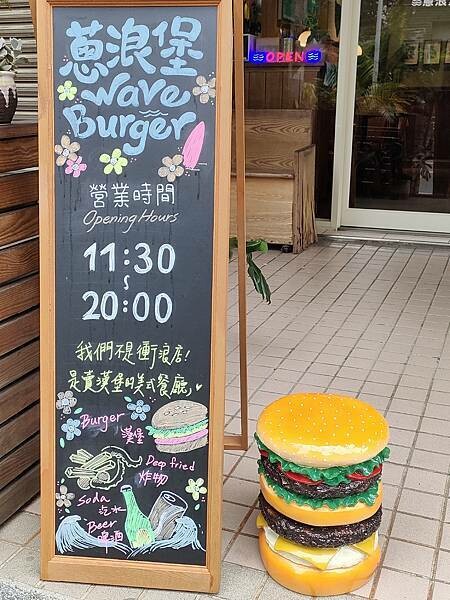 蔥浪堡
Wave
Burger
營業時間
Opening Hours
11:30
~
20:00
我們不是衝浪店!
是賣漢堡的美式餐廳,
Burger
漢堡
Deep fried
炸物
Soda
汽水
Beer
啤酒
OPEN